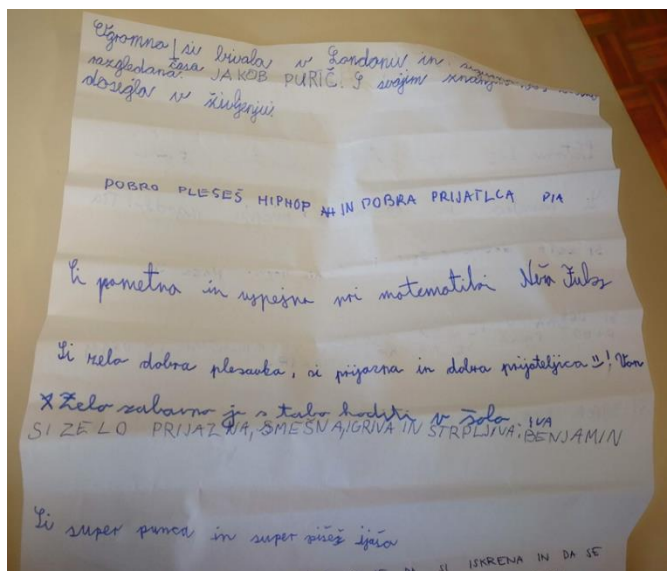 Ogromna si bivala v Londonu in
razgledana. JAKOB PURIČ. S svojim
dosegla v življenju.
DOBRO PLESEŠ HIPHOP IN DOBRA PRIJATLCA PIA
Si pametna in uspešna pri matematiki Neža
Si zelo dobra plesavka, si prijazna in dobra prijateljica !
Zelo zabavno je s tabo hoditi v šolo. IVA
SI ZELO PRIJAZNA, SMEŠNA, IGRIVA IN STRPLJIVA. BENJAMIN
Si super punca in super pišeš
SI ISKRENA IN DA SE